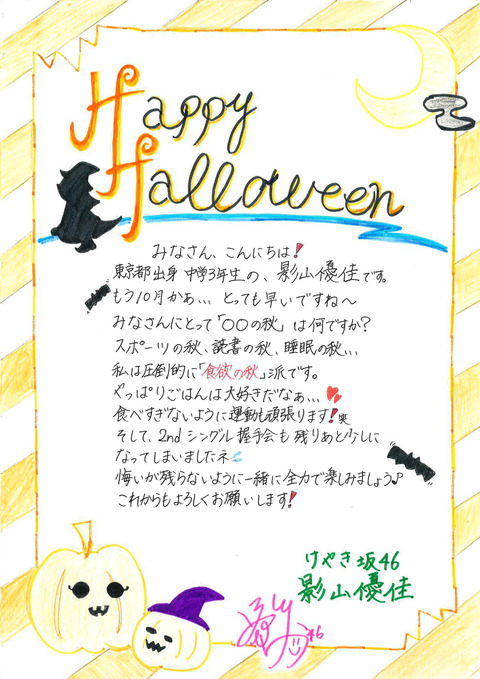 Happy
Halloween
みなさん、こんにちは!
東京都出身 中学3年生の、影山優佳です。
もう10月かぁ、、、とっても早いですね〜
みなさんにとって「〇〇の秋」は何ですか?
スポーツの秋、読書の秋、睡眠の秋、、、
私は圧倒的に「食欲の秋」派です。
やっぱりごはんは大好きだなぁ、、、
食べすぎないように運動も頑張ります!笑
そして、2ndシングル握手会も残りあと少しに
なってしまいましたネ
悔いが残らないように一緒に全力で楽しみましょう♪
これからもよろしくお願いします!
けやき坂46
影山優佳
46